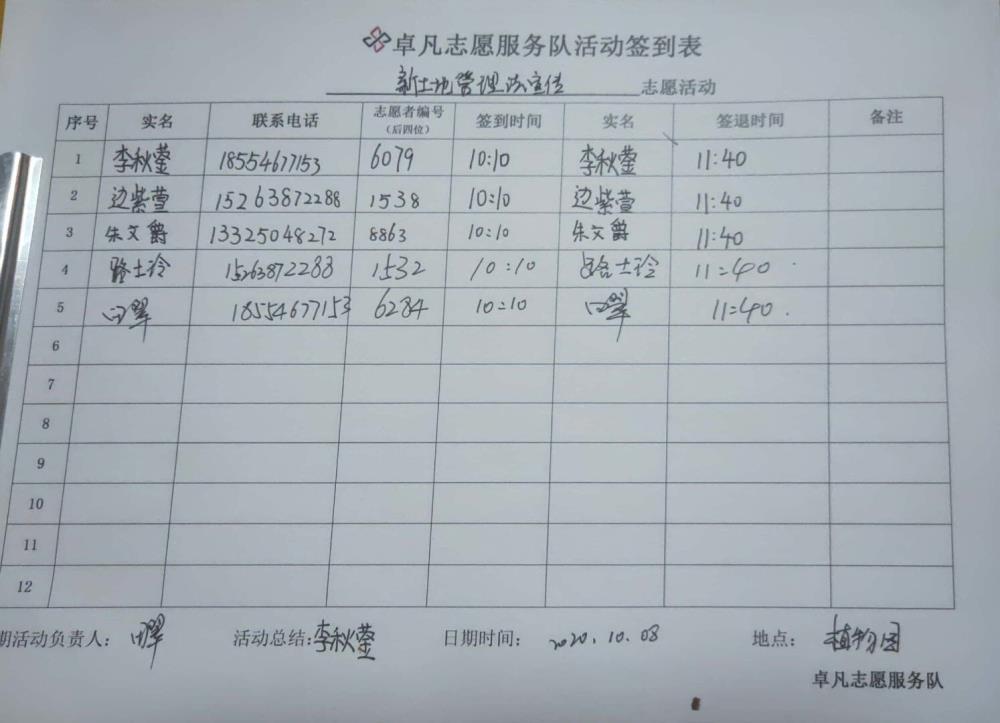 卓凡志愿服务队活动签到表
新土地管理法宣传 志愿活动
序号 实名 联系电话 志愿者编号 (后四位) 签到时间 实名 签退时间 备注
1 李秋蓥 18554677153 6079 10:10 李秋蓥 11:40
2 边紫萱 15263872288 1538 10:10 边紫萱 11:40
3 朱文爵 13325048272 8863 10:10 朱文爵 11:40
4 路士玲 15263872288 1532 10:10 路士玲 11:40
5 田翠 18554677153 6284 10:10 田翠 11:40
6
7
8
9
10
11
12
期活动负责人: 田翠 活动总结:李秋蓥 日期时间: 2020.10.08 地点: 植物园
卓凡志愿服务队